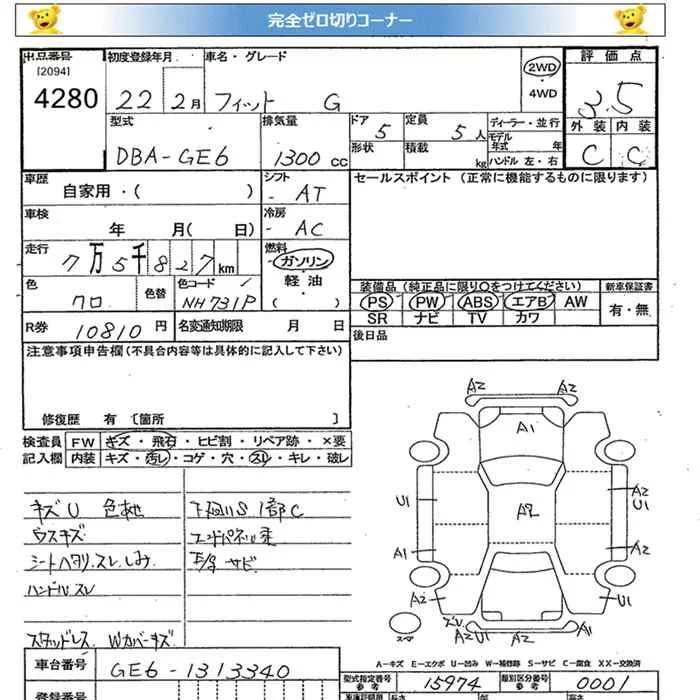 完全ゼロ切りコーナー
出品番号 [2094] 4280
初度登録年月 22 2月
車名・グレード フィット G
2WD ・ 4WD
評価点 3.5
外装 C 内装 C
型式 DBA-GE6
排気量 1300 cc
ドア 5 定員 5人
形状 積載 kg
ディーラー・並行
モデル年式 年
ハンドル 左・右
車歴 自家用・( )
シフト - AT
セールスポイント (正常に機能するものに限ります)
車検 年 月( 日)
冷房 - AC
走行 7万5千827km
燃料 - ガソリン・軽油・( )
色 クロ 色替 色コード NH731P
装備品 (純正品に限り○をつけてください) 新車保証書
PS PW ABS エアB AW 有・無
SR ナビ TV カワ
R券 10810円 名変通知期限 月 日
後日品
注意事項申告欄(不具合内容等は具体的に記入して下さい)
修復歴 有 [箇所 ]
検査員 FW キズ・飛石・ヒビ割・リペア跡・×要
記入欄 内装 キズ・汚レ・コゲ・穴・スレ・キレ・破レ
キズ U 色あせ
ウスキズ
シートヘタリ.スレ.しみ
ハンドル スレ
スタッドレス Wカバーキズ
下廻りS 1部C
エンドパネル
サビ
A2 A2
A1
U1 A2 A2 U1
A1 A2
A2 U1
スペア
A2 U1 A2 A2
A-キズ E-エクボ U-凹み W-補修跡 S-サビ C-腐食 XX-交換済
車台番号 GE6-1313340
型式指定番号 参考 15974 類別区分番号 参考 0001
登録番号